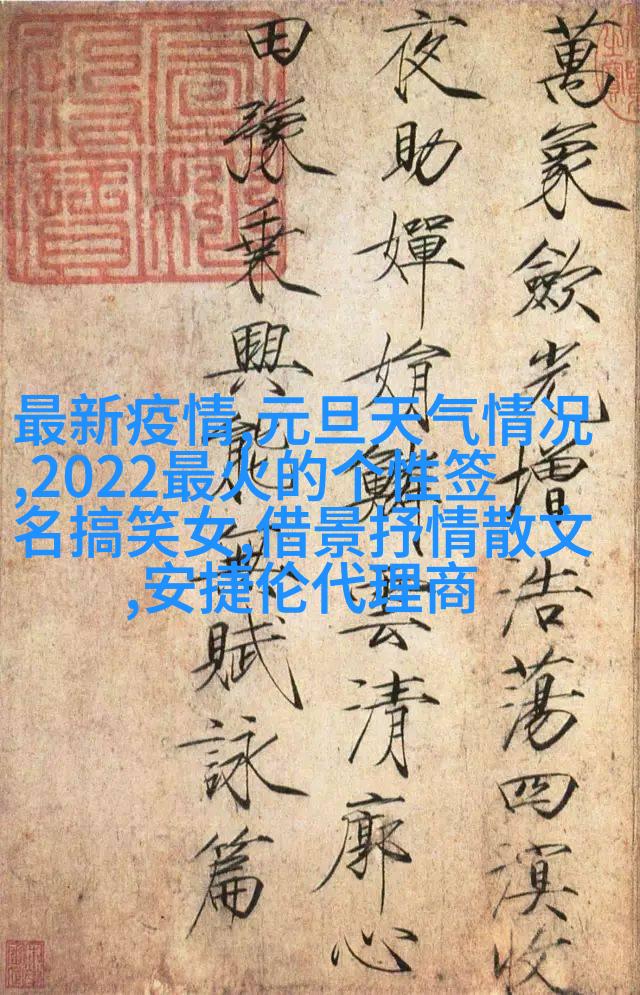 萬象歛光增浩蕩四溟收
夜助嬋娟鱗雲清廓心
田豫乗興能無賦詠篇
最新疫情,元旦天气情况
,2022最火的个性签
名搞笑女,借景抒情散文
,安捷伦代理商